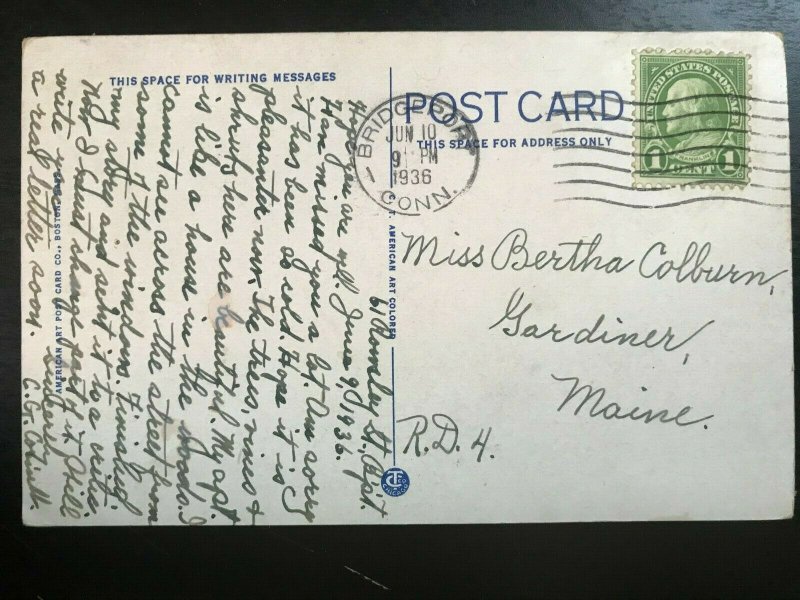 THIS SPACE FOR WRITING MESSAGES
POST CARD
THIS SPACE FOR ADDRESS ONLY
BRIDGEPORT
JUN 10
9 PM
1936
CONN.
1
UNITED STATES POSTAGE
FRANKLIN
1 CENT 1
Miss Bertha Colburn,
Gardiner,
Maine.
R.D. 4.
61 St., Apt.
June 9, 1936.
Hope you are well.
Have missed you a lot. Am sorry
it has been so cold. Hope it is
pleasanter now. The trees, vines &
shrubs here are beautiful. My apt.
is like a house in the woods. I
cannot see across the street from
some of the windows. Finished
my story and sent it to a critic.
Now I must change part of it. Will
write you
a real letter soon.
Sincerely,
C. G.
AMERICAN ART POST CARD CO., BOSTON
C. T. AMERICAN ART COLORED
CT CO
CHICAGO